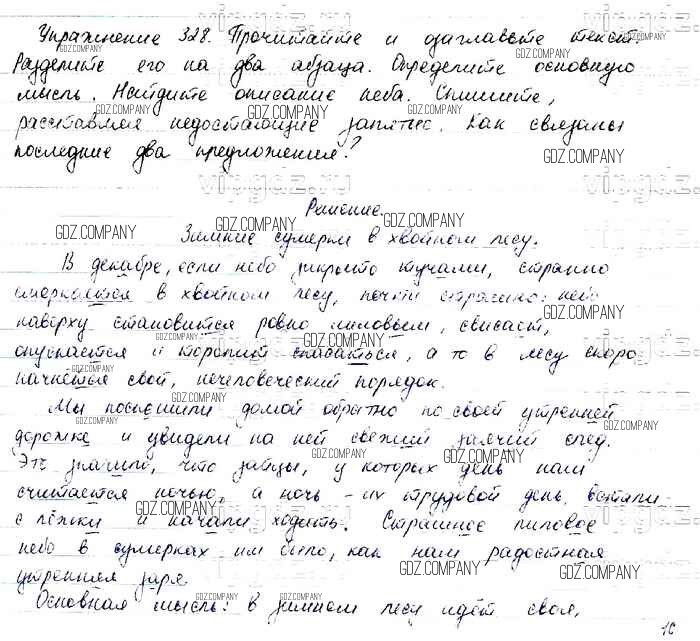 Упражнение 328. Прочитайте и озаглавьте текст.
Разделите его на два абзаца. Определите основную
мысль. Найдите описание неба. Спишите,
расставляя недостающие запятые. Как связаны
последние два предложения?
Решение.
Зимние сумерки в хвойном лесу.
В декабре, если небо закрыто тучами, странно
смеркается в хвойном лесу, почти страшно: небо
наверху становится ровно лиловым, свисает,
опускается и торопит спасаться, а то в лесу скоро
начнётся свой, нечеловеческий порядок.
Мы поспешили домой обратно по своей утренней
дорожке и увидели на ней свежий заячий след.
Это значило, что зайцы, у которых день наш
считается ночью, а ночь - их трудовой день, встали
с лёжки и начали ходить. Страшное лиловое
небо в сумерках им было, как нам радостная
утренняя заря.
Основная мысль: в зимнем лесу идёт своя,
10
vipgdz.ru
GDZ.COMPANY